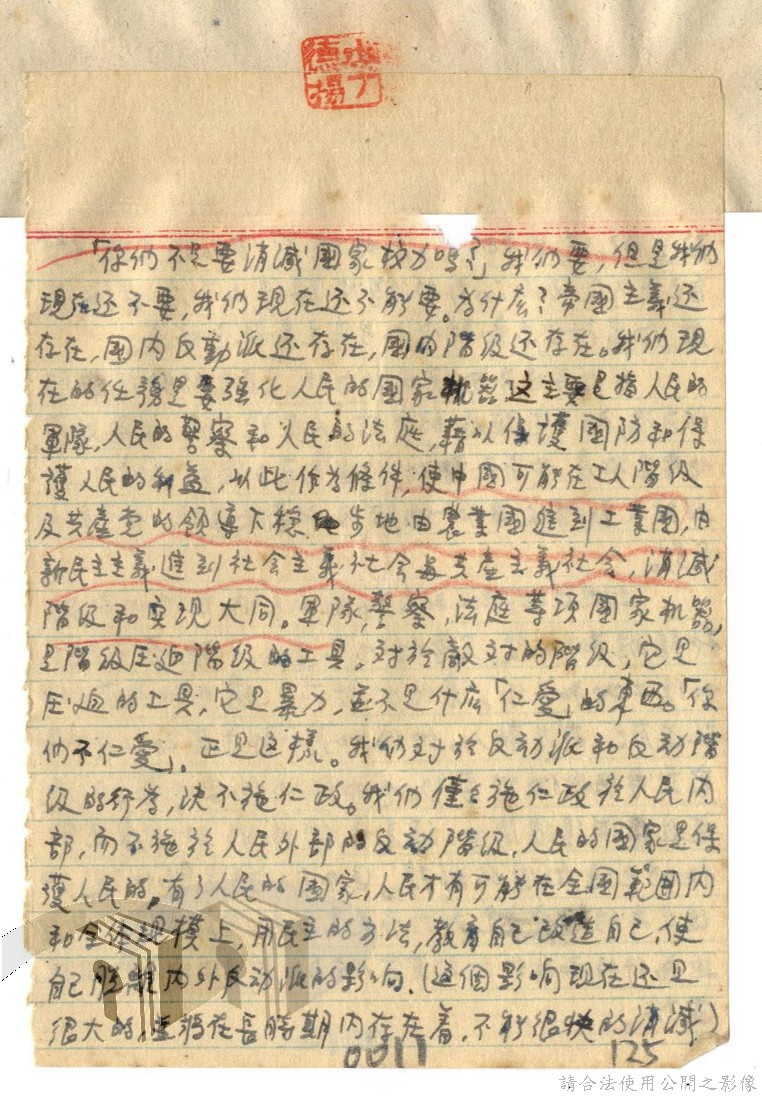 「你们不是要消滅國家权力嗎？」我们要，但是我们
现在还不要，我们现在还不能要。为什么？帝國主義还
存在，國内反動派还存在，國内階级还存在。我们现
在的任務是要强化人民的國家机器这主要是指人民的
軍隊，人民的警察和人民的法庭，藉以保護國防和保
護人民的利益，以此作为條件，使中國可能在工人階级
及共產党的領導下稳步地由農業國進到工業國，由
新民主主義進到社会主義社会与共產主義社会，消滅
階级和实现大同。軍隊，警察，法庭等項國家机器，
是階级压迫階级的工具。对於敵对的階级，它是
压迫的工具，它是暴力，並不是什么「仁愛」的東西。「你
们不仁愛」。正是这樣。我们对於反动派和反动階
级的行为，决不施仁政。我们僅僅施仁政於人民内
部，而不施於人民外部的反动階级，人民的國家是保
護人民的。有了人民的國家，人民才有可能在全國範圍内
和全体规模上，用民主的方法，教育自己改造自己，使
自己脱離内外反动派的影响，（這個影响现在还是
很大的，並将在長時期内存在着，不能很快的消滅）
0011 125
請合法使用公開之影像